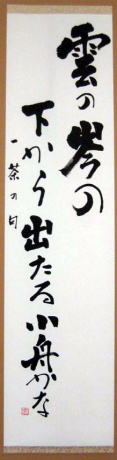 雲の岑の
下から出たる小舟かな
一茶の句